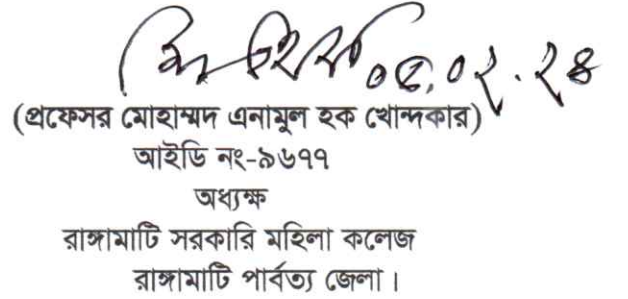 ০৫.০২.২৪
(প্রফেসর মোহাম্মদ এনামুল হক খোন্দকার)
আইডি নং-৯৬৭৭
অধ্যক্ষ
রাঙ্গামাটি সরকারি মহিলা কলেজ
রাঙ্গামাটি পার্বত্য জেলা।